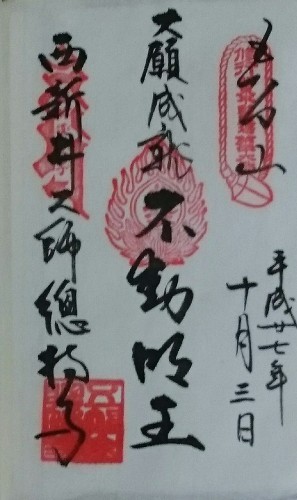 五智山
平成廿七年
十月三日
大願成就
不動明王
西新井大師總持寺